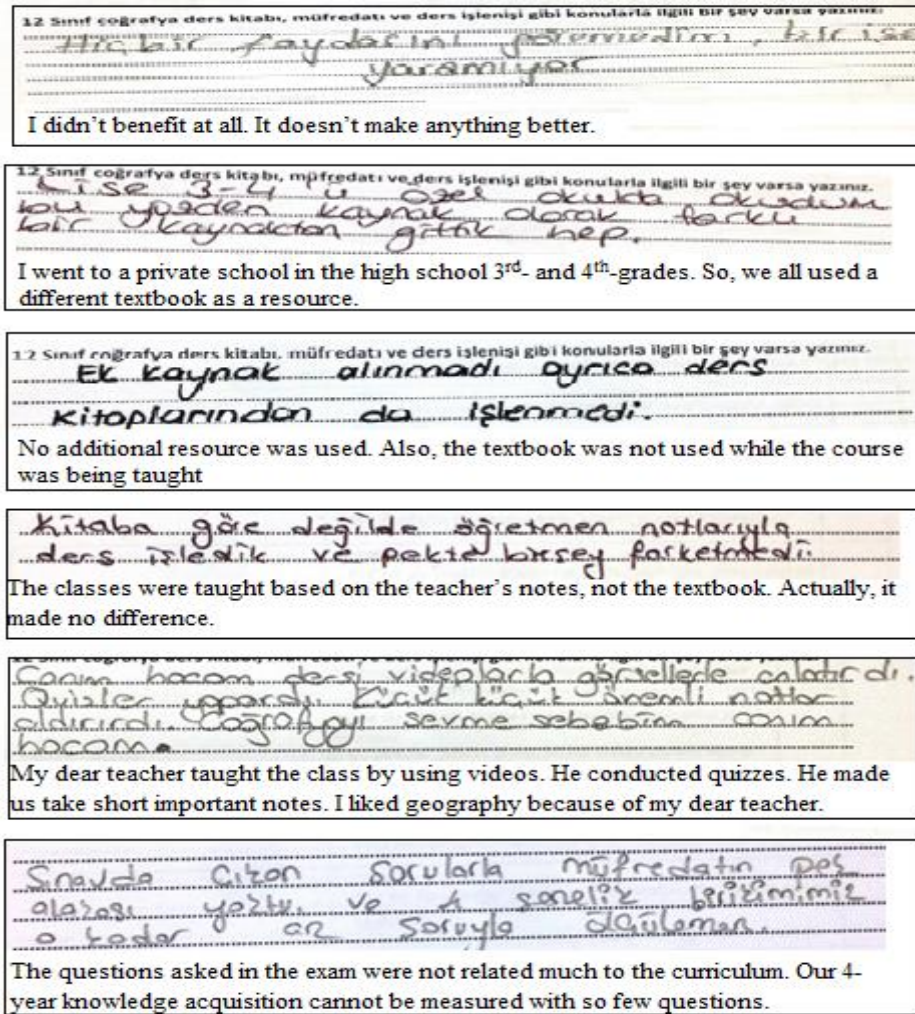 12 Sınıf coğrafya ders kitabı, müfredatı ve ders işlenişi gibi konularla ilgili bir şey varsa yazınız.
Hiçbir faydasını göremedim, bir işe
yaramıyor
I didn’t benefit at all. It doesn’t make anything better.
12 Sınıf coğrafya ders kitabı, müfredatı ve ders işlenişi gibi konularla ilgili bir şey varsa yazınız.
Lise 3-4 ü özel okulda okudum
bu yüzden kaynak olarak farklı
bir kaynaktan gittik hep.
I went to a private school in the high school 3rd- and 4th-grades. So, we all used a
different textbook as a resource.
12 Sınıf coğrafya ders kitabı, müfredatı ve ders işlenişi gibi konularla ilgili bir şey varsa yazınız.
Ek kaynak alınmadı ayrıca ders
kitaplarından da işlenmedi.
No additional resource was used. Also, the textbook was not used while the course
was being taught
Kitaba göre değilde öğretmen notlarıyla
ders işledik ve pekte birşey farketmedi.
The classes were taught based on the teacher’s notes, not the textbook. Actually, it
made no difference.
Canım hocam dersi videolarla görsellerle anlatırdı.
Quizler yapardı. Küçük küçük önemli notlar
aldırırdı. Coğrafyayı sevme sebebim canım
hocam.
My dear teacher taught the class by using videos. He conducted quizzes. He made
us take short important notes. I liked geography because of my dear teacher.
Sınavda çıkan sorularla müfredatın pek
alakası yoktu. ve 4 senelik birikimimiz
o kadar az soruyla ölçülemez.
The questions asked in the exam were not related much to the curriculum. Our 4-
year knowledge acquisition cannot be measured with so few questions.